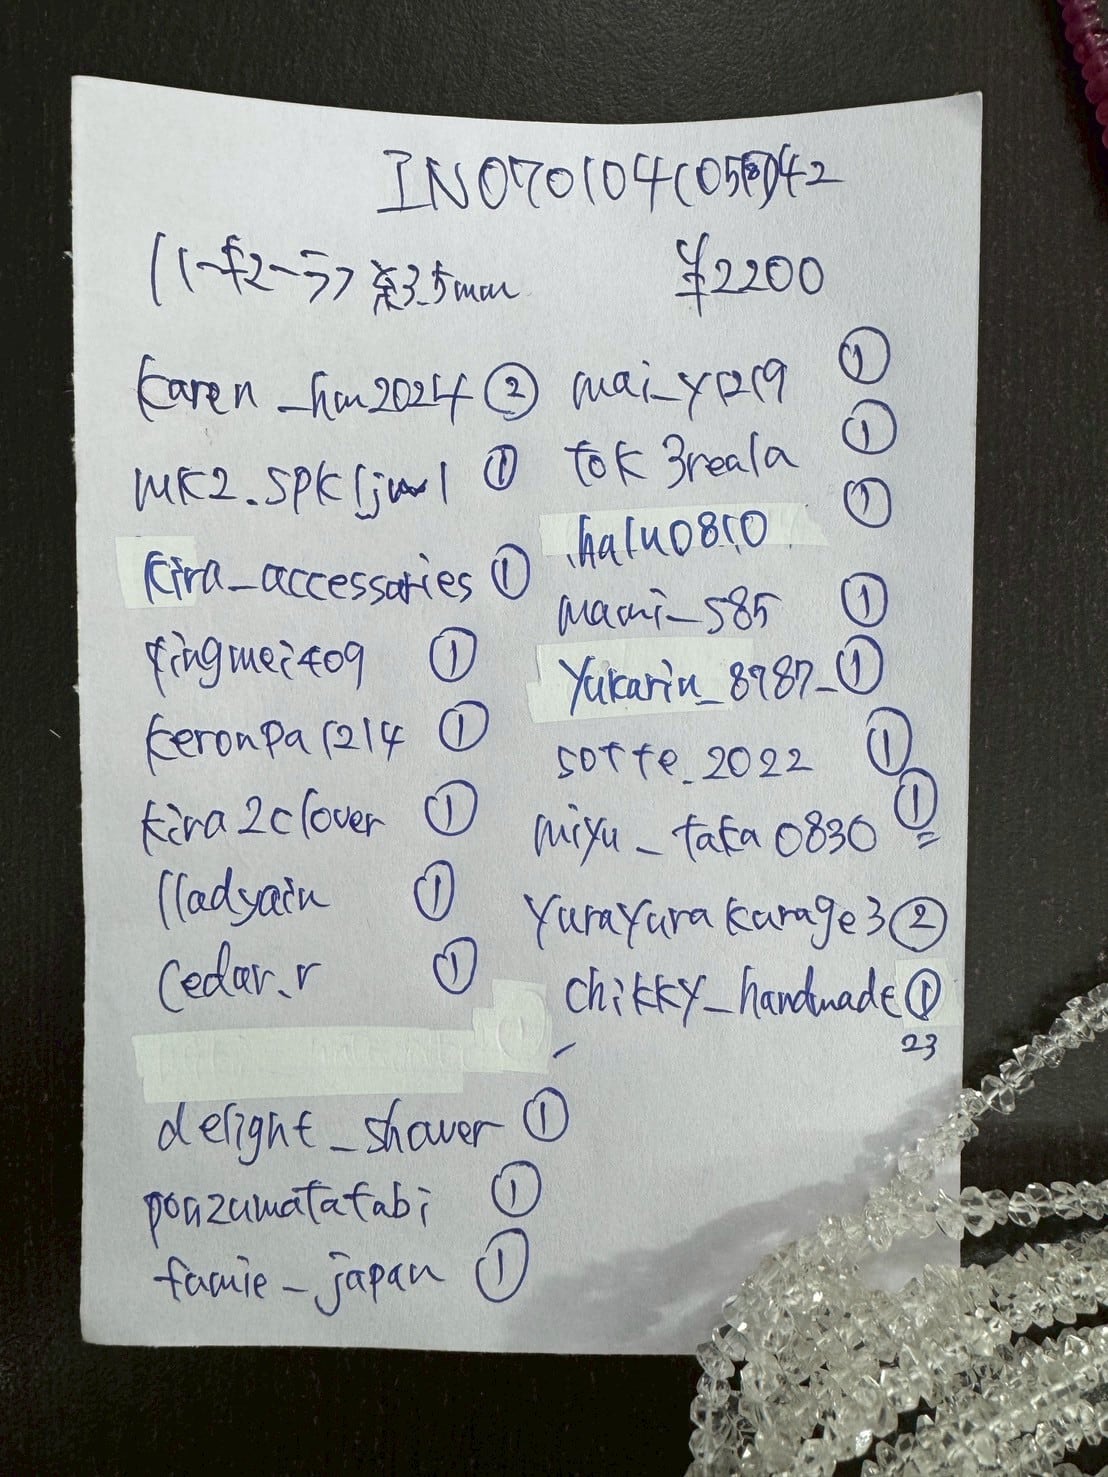 IN070104(058)42
ハーキマーララ 約3.5mm ¥2200
karen_hm2024 ②
mk2.spkljwl ①
kira_accessories ①
xingmei409 ①
keronpa1214 ①
kira2clover ①
lladyain ①
cedar.r ①
delight_shower ①
ponzumatatabi ①
famie_japan ①
mai_y1219 ①
tok3reala ①
halu0810 ①
mami_585 ①
yukarin_8787_ ①
sotte_2022 ①
miyu_taka0830 ①
yurayurakurage3 ②
chikky_handmade ①
23